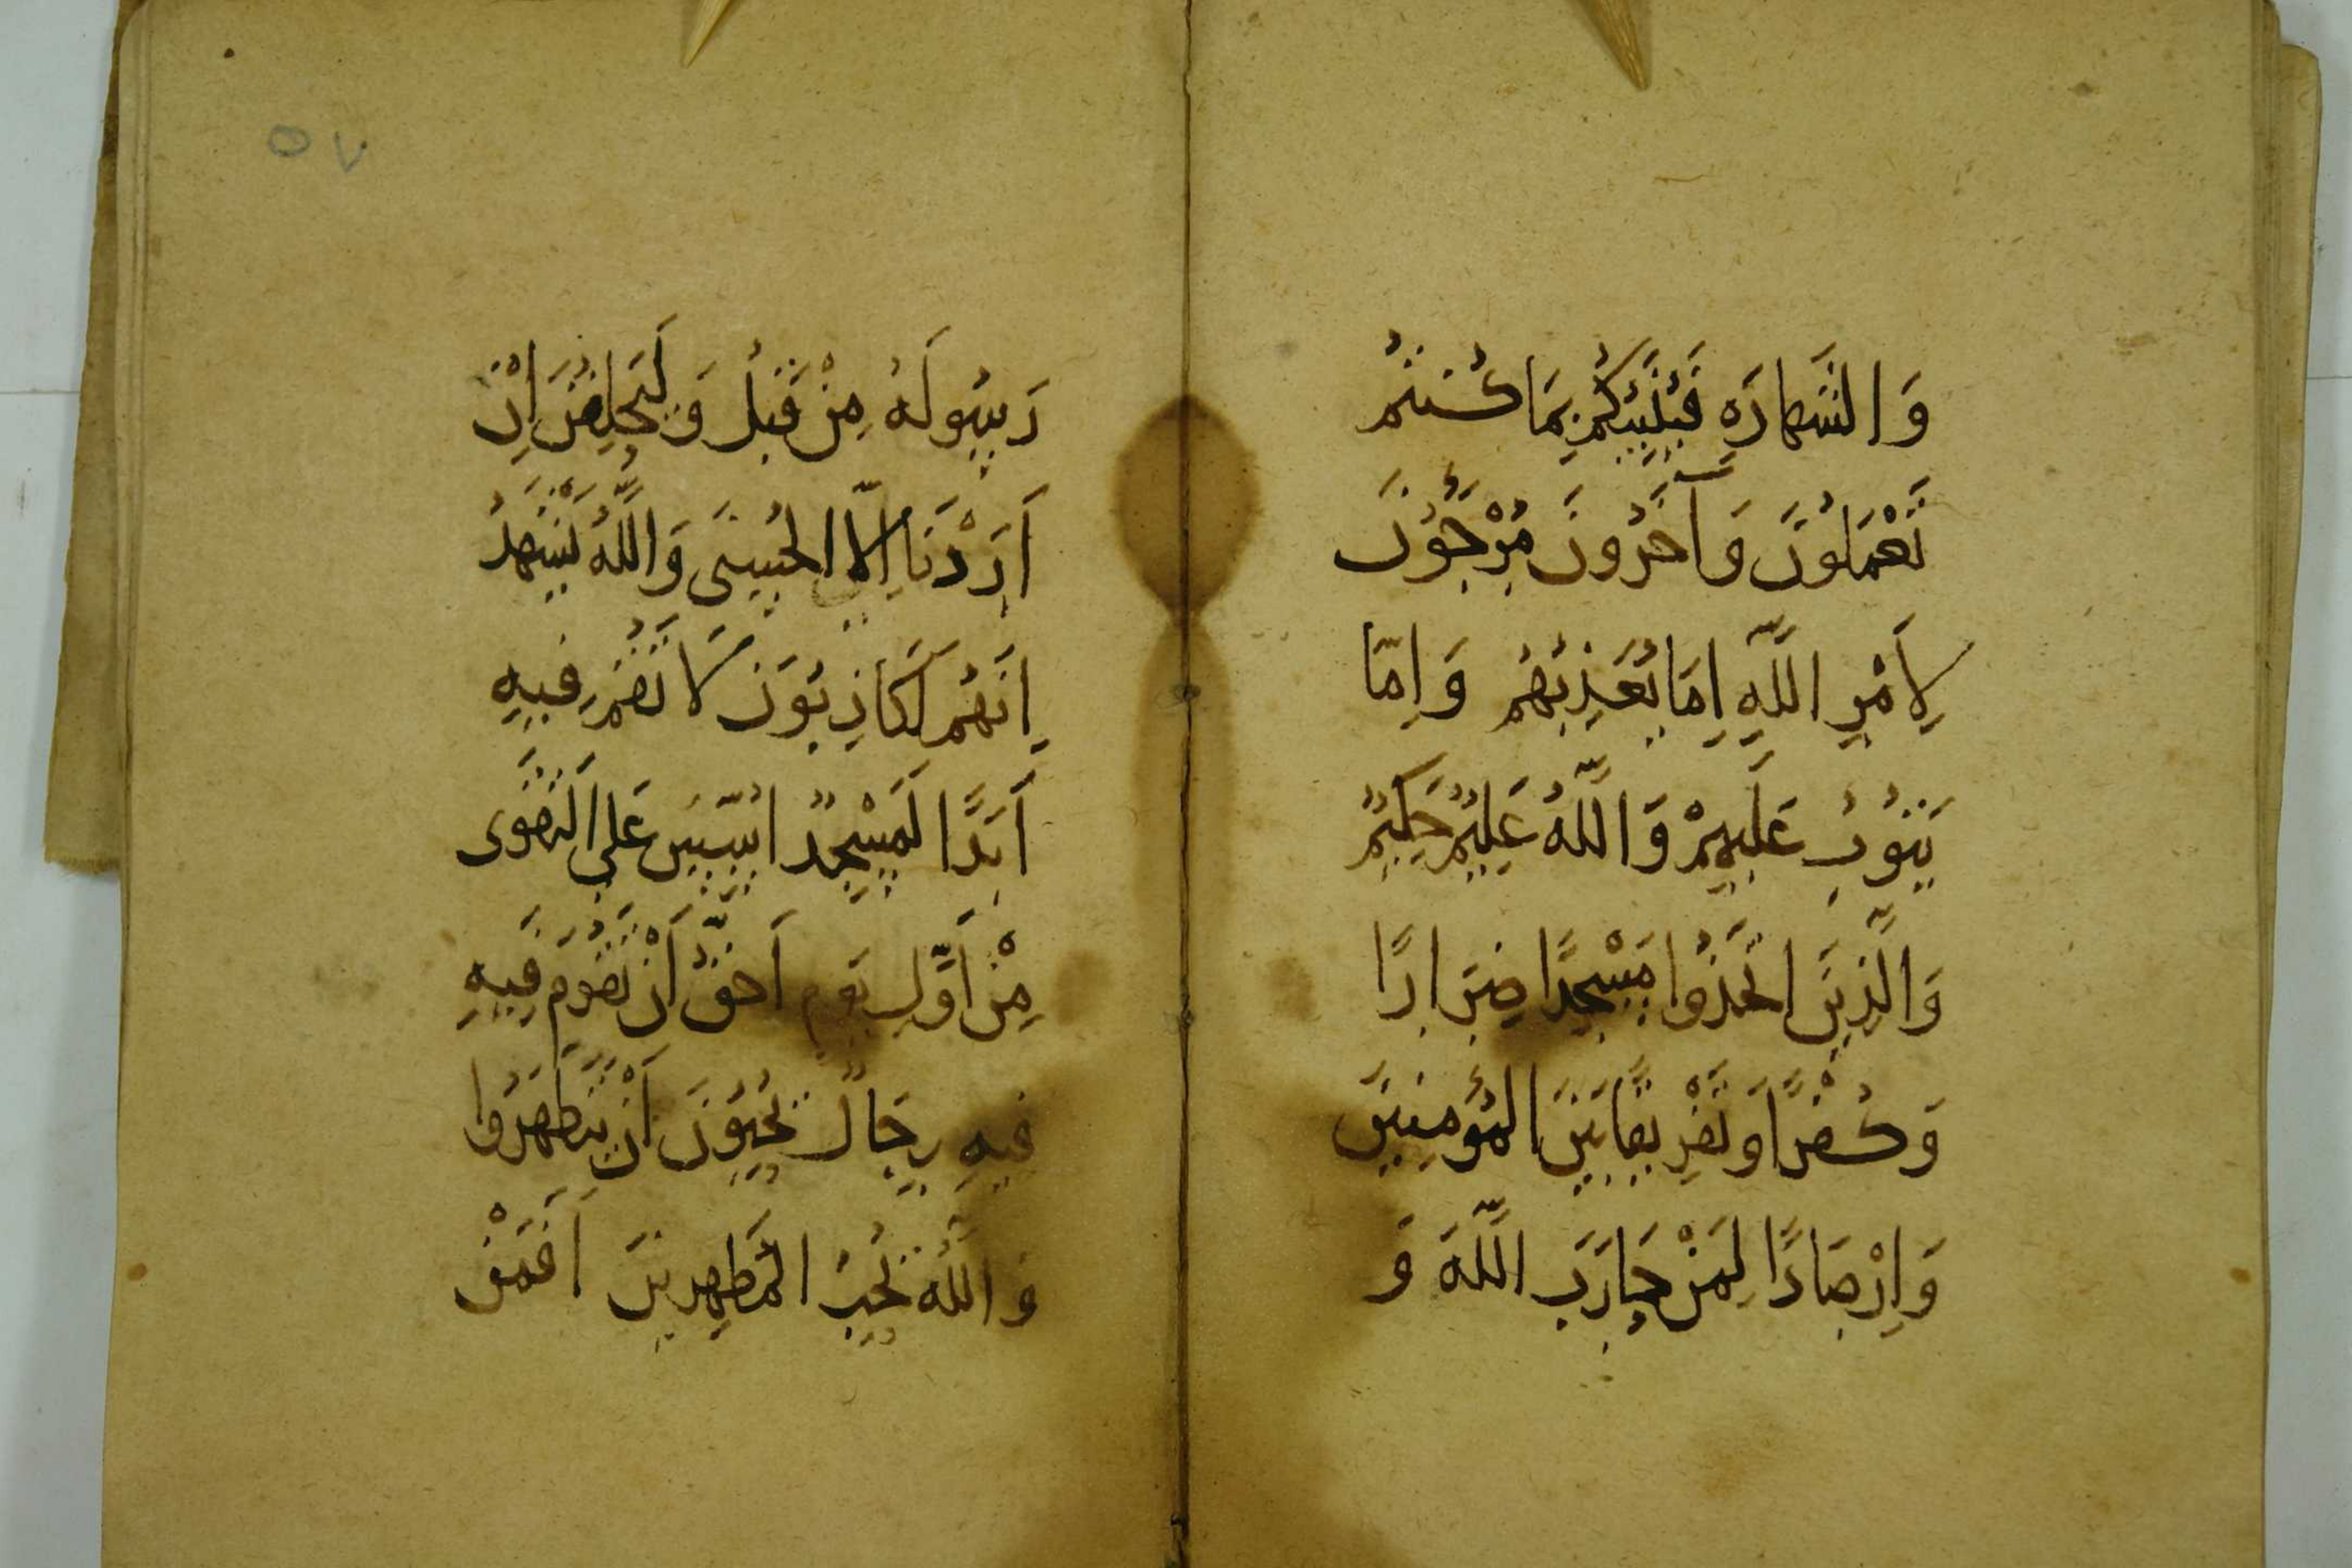 وَالشَّهَادَهِ فَيُنَبِّئُكُمْ بِمَا كُنتُمْ
تَعْمَلُونَ وَآخَرُونَ مُرْجَؤُنَ
لِاَمْرِ اللَّهِ اِمَّا يُعَذِّبُهُمْ وَاِمَّا
يَتُوبُ عَلَيْهِمْ وَاللَّهُ عَلِيمٌ حَكِيمٌ
وَالَّذِينَ اتَّخَذُوا مَسْجِدًا ضِرَارًا
وَكُفْرًا وَتَفْرِيقًا بَيْنَ الْمُؤمِنِينَ
وَاِرْصَادًا لِمَنْ حَارَبَ اللَّهَ وَ
٥٧
رَسُولَهُ مِنْ قَبْلُ وَلَيَحْلِفُنَّ اِنْ
اَرَدْنَا اِلَّا الْحُسْنَى وَاللَّهُ يَشْهَدُ
اِنَّهُمْ لَكَاذِبُونَ لَا تَقُمْ فِيهِ
اَبَدًا لَمَسْجِدٌ اُسِّسَ عَلَى التَّقْوَى
مِنْ اَوَّلِ يَوْمٍ اَحَقُّ اَنْ تَقُومَ فِيهِ
فِيهِ رِجَالٌ يُحِبُّونَ اَنْ يَتَطَهَّرُوا
وَاللَّهُ يُحِبُّ الْمُطَّهِرِينَ اَفَمَنْ